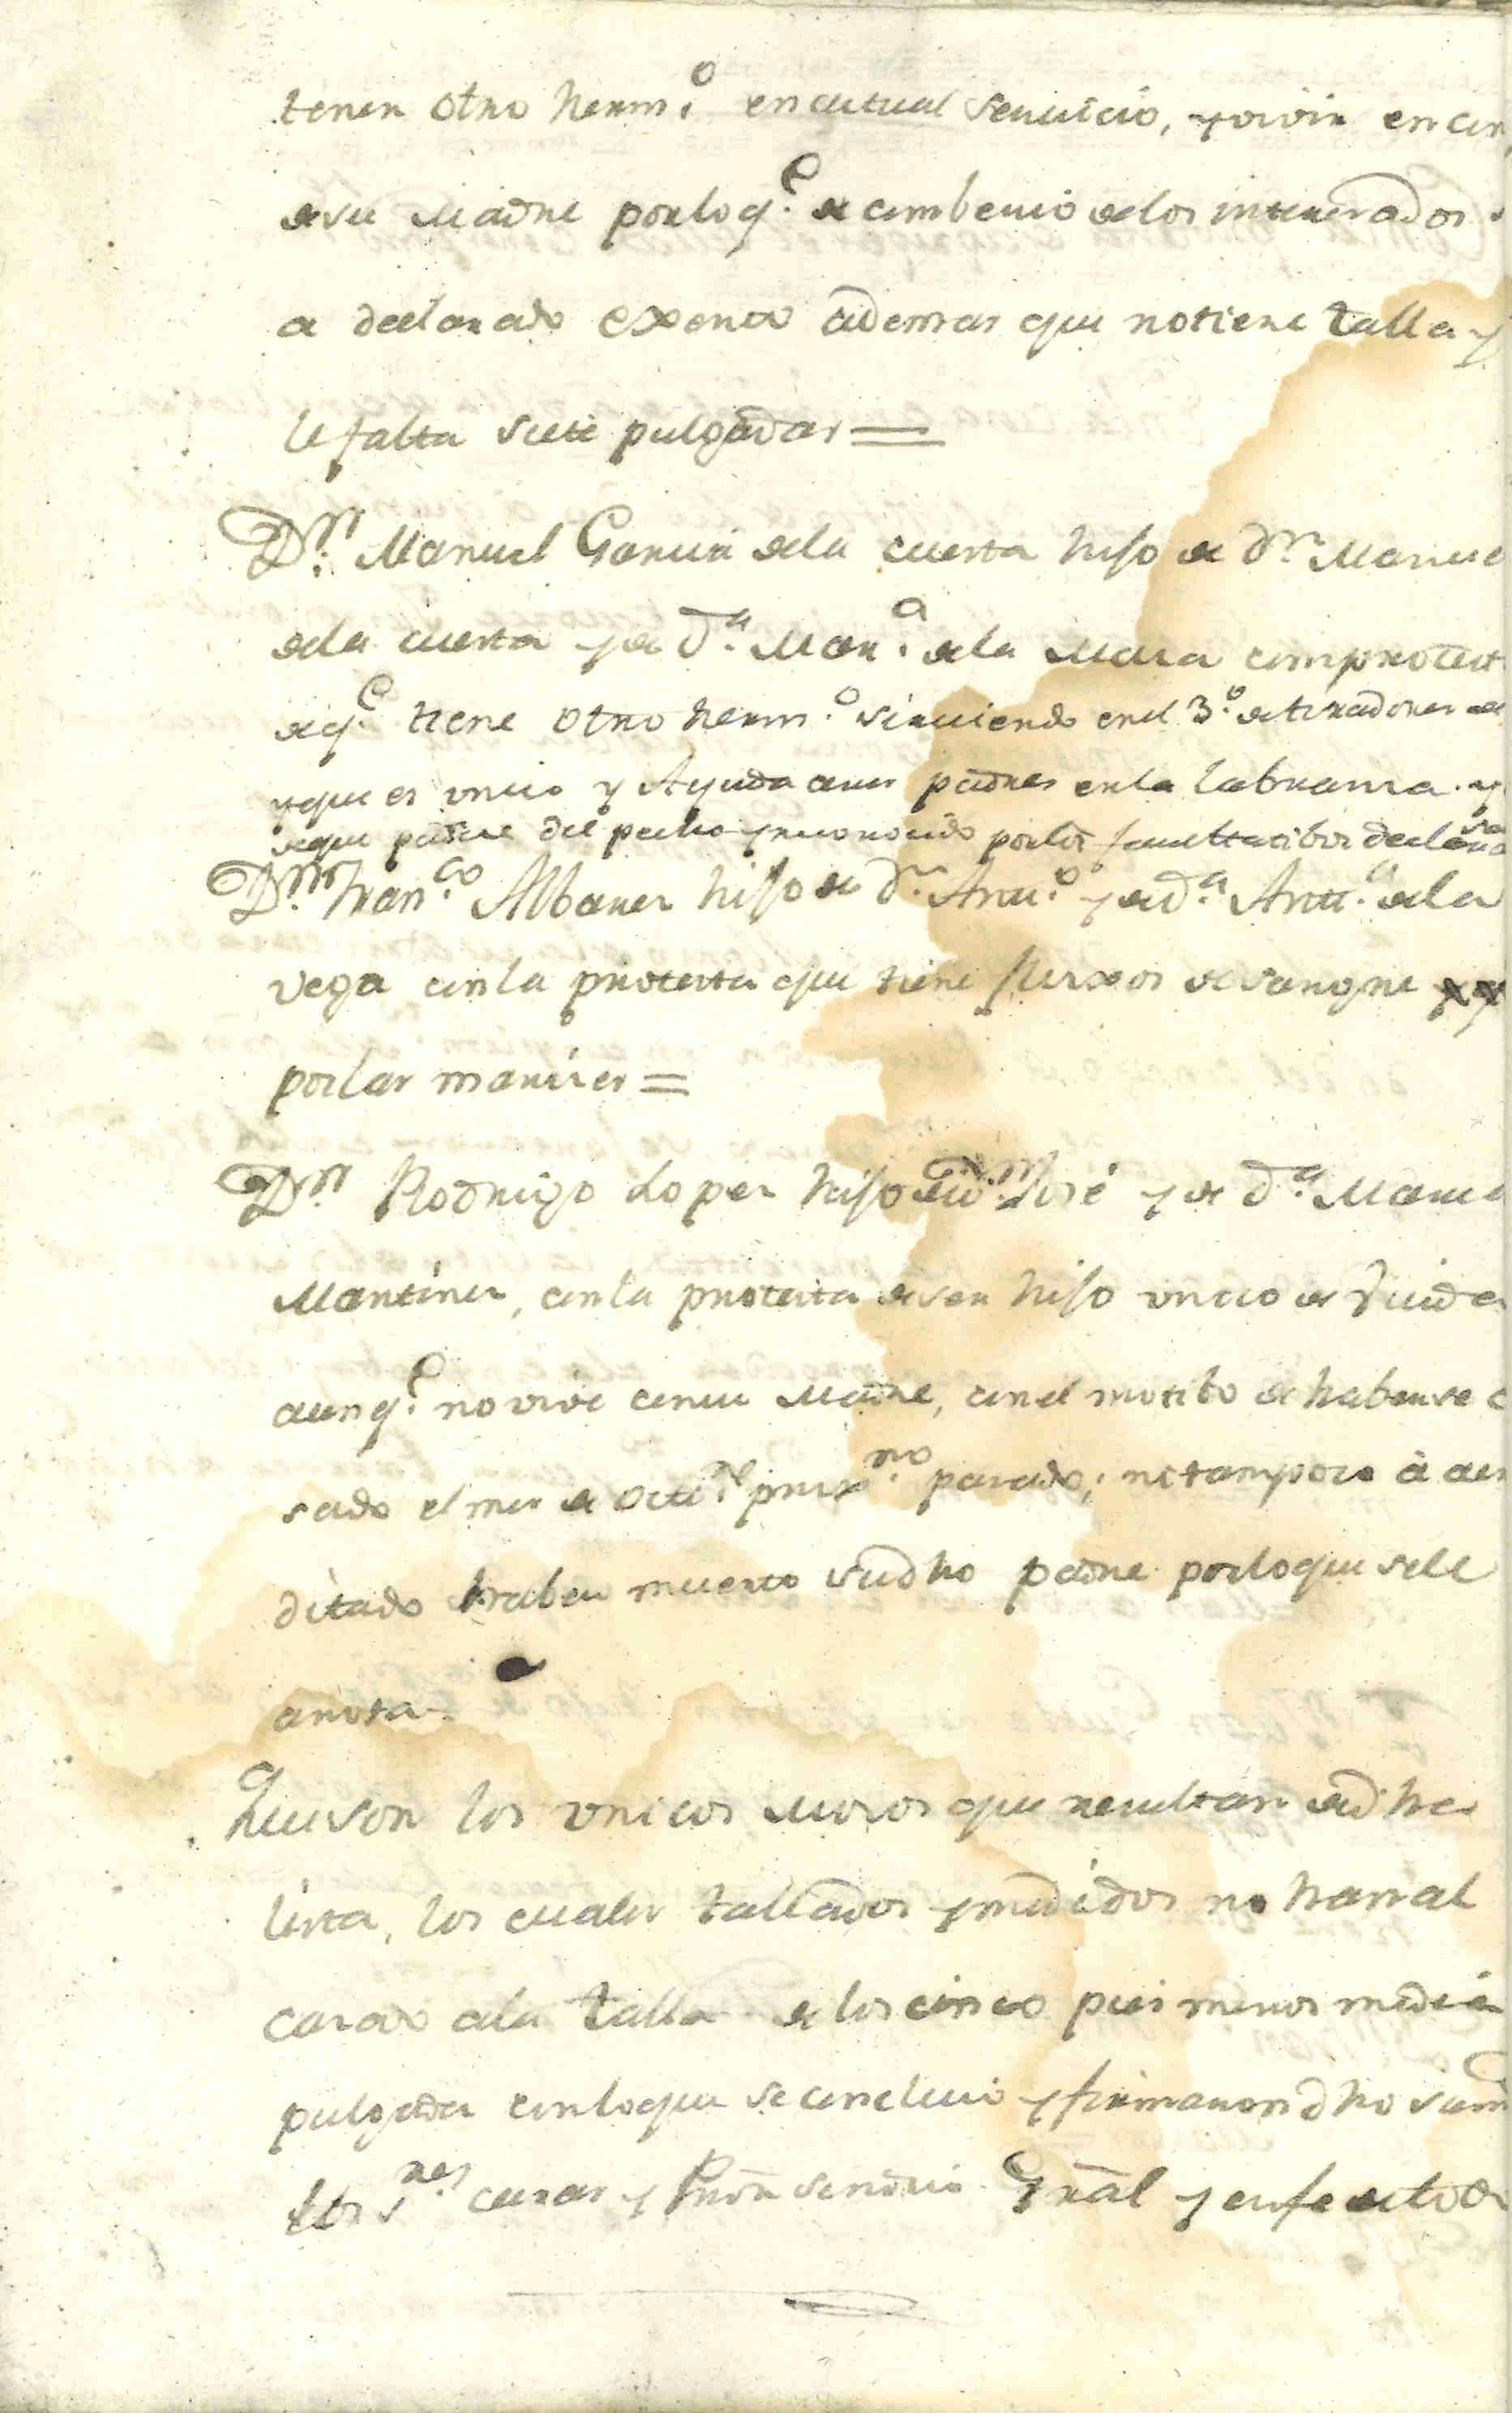 tener otro herm.o en actual servicio, y vivir en
de su Madre por lo q.e de combenio de los interesados
a declarado exento ademas que no tiene talla y
le falta siete pulgadas =
Dn. Manuel Garcia de la cuesta hijo de Dn. Manuel
de la cuesta y de Da. Mar.a de la Maza com protesta
de q.e tiene otro herm.o sirviendo en el 3.o de tiradores de
y que es unico y Ayuda a sus padres en la labranza. y
de que padece del pecho y reconocido por los facultatibos
Dn. Fran.co Albarez hijo de Dn. Ant.o y de Da. Ant.a de la
vega con la protesta que tiene fluxos de sangre
por las narizes =
Dn. Rodrigo Lopez hijo de Dn. José y de Da. Manuela
Martinez, con la protesta de ser hijo unico de viuda
aunq.e no vive con su Madre, con el motibo de haberse
sado el mes de Octu.e prox.mo pasado; ni tampoco á acre
ditado haber muerto su dho padre por lo que se le
anota.
Que son los unicos mozos que resultan de dha
lista, los cuales tallados y medidos no han al
canzado a la talla de los cinco pies menos media
pulgada con lo que se concluio y firmaron dho
los S.res curas y Pror sindico Gral y en fe de todo